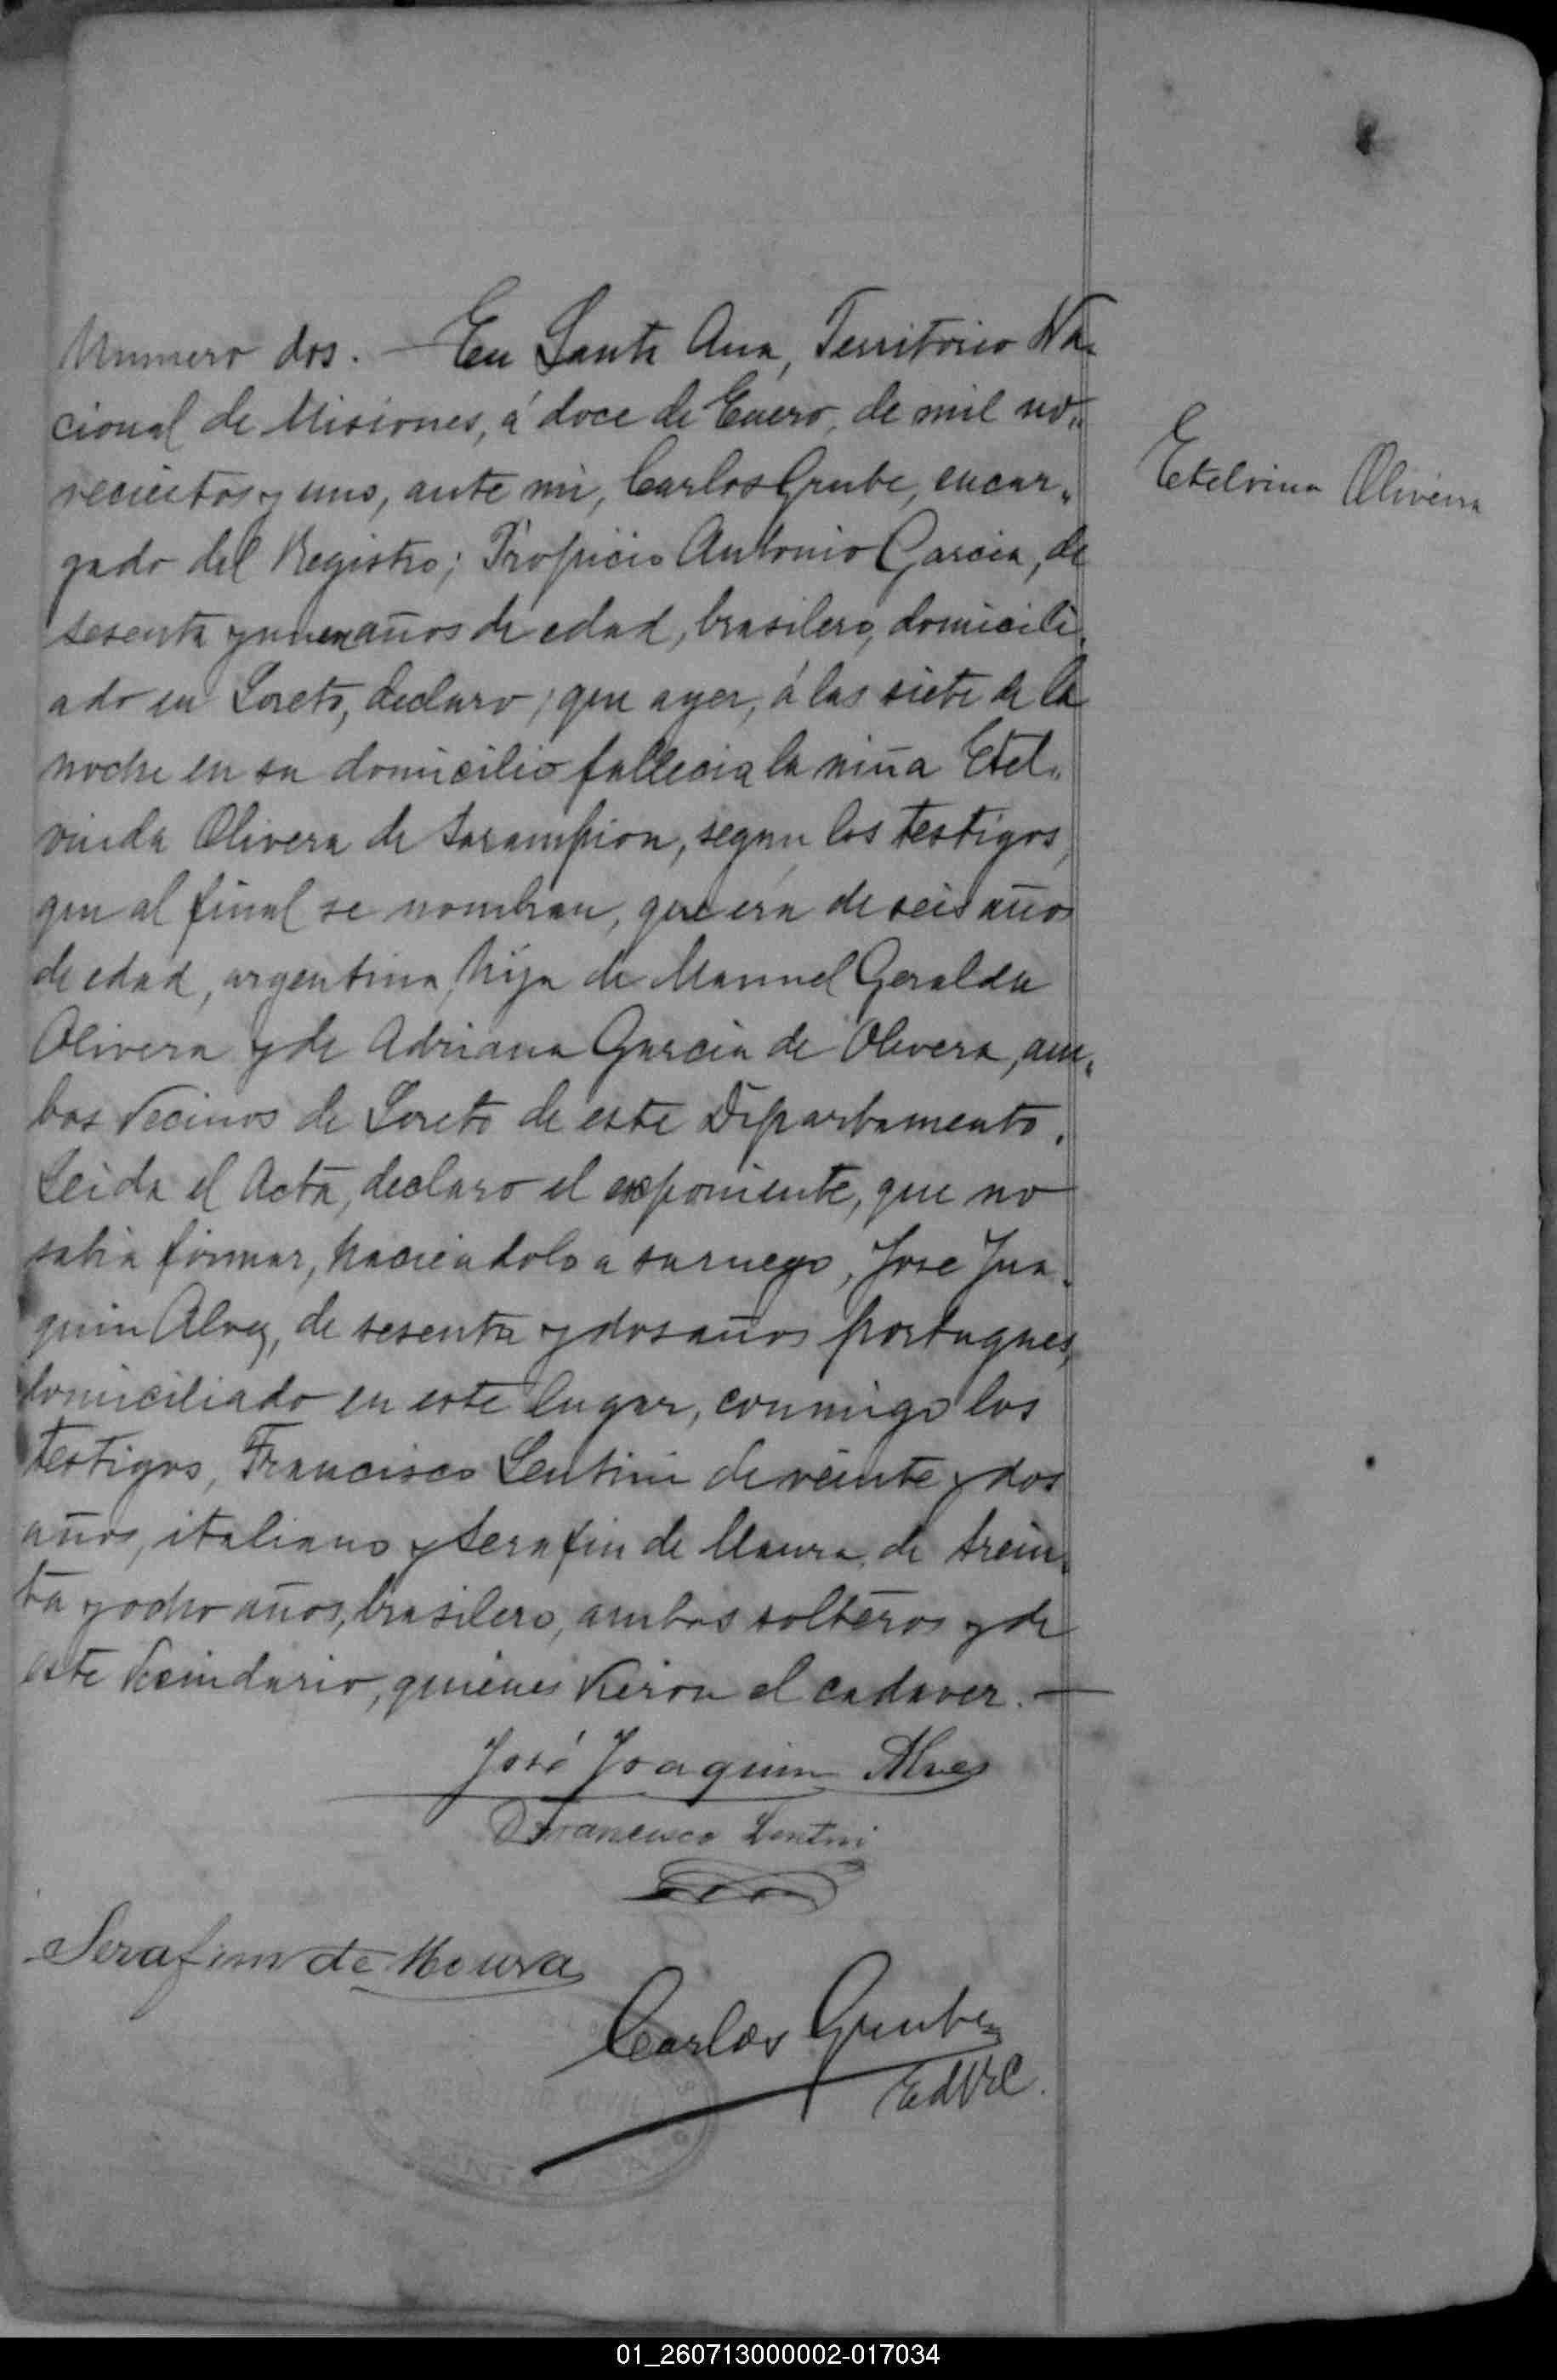 Numero dos. — En Santa Ana, Territorio Na-
cional de Misiones, á doce de Enero, de mil no-
vecientos y uno, ante mi, Carlos Grube, encar-
gado del Registro; Propicio Antonio Garcia, de
sesenta y nueve años de edad, brasilero, domicili-
ado en Loreto, declaro; que ayer, á las siete de la
noche en su domicilio fallecia la niña Etel-
vinda Olivera de Sarampion, segun los testigos,
que al final se nombran, que era de seis años
de edad, argentina, hija de Manuel Geraldu
Olivera y de Adriana Garcia de Olivera, am-
bos vecinos de Loreto de este Departamento.
Leida el Acta, declaro el exponiente, que no
sabia firmar, haciendolo a su ruego, Jose Jua-
quin Alvez, de sesenta y dos años portugues,
domiciliado en este lugar, conmigo los
testigos, Francisco Lentini de veinte y dos
años, italiano y Serafin de Maura, de trein-
ta y ocho años, brasilero, ambos solteros y de
este Vecindario, quienes vieron el cadaver. —
José Joaquim Alves
Francisco Lentini
Serafim de Moura
Carlos Grube
EdlRC.
Etelvina Olivera
01_260713000002-017034